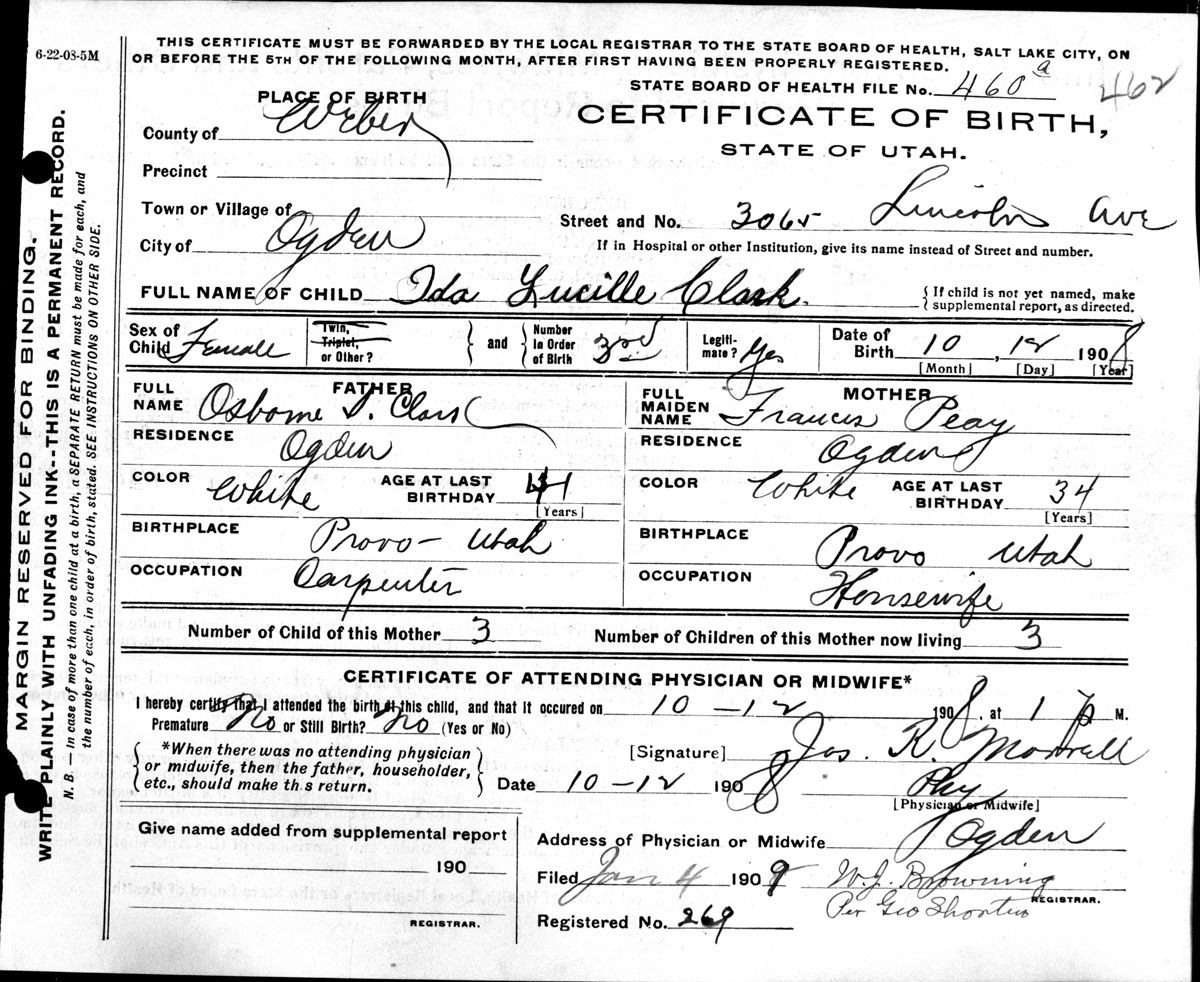 6-22-08-5M
THIS CERTIFICATE MUST BE FORWARDED BY THE LOCAL REGISTRAR TO THE STATE BOARD OF HEALTH, SALT LAKE CITY, ON
OR BEFORE THE 5TH OF THE FOLLOWING MONTH, AFTER FIRST HAVING BEEN PROPERLY REGISTERED.
STATE BOARD OF HEALTH FILE No. 460 a 462
PLACE OF BIRTH
CERTIFICATE OF BIRTH,
STATE OF UTAH.
County of Weber
Precinct
Town or Village of
Street and No. 3065 Lincoln Ave
City of Ogden
If in Hospital or other Institution, give its name instead of Street and number.
FULL NAME OF CHILD Ida Lucille Clark.
{ If child is not yet named, make
supplemental report, as directed.
Sex of Child Female
Twin, Triplet, or Other? } and { Number In Order of Birth 3rd
Legiti-mate? Yes
Date of Birth 10, 12 1908
[Month] [Day] [Year]
FATHER
FULL NAME Osborne S. Clark
RESIDENCE Ogden
COLOR White AGE AT LAST BIRTHDAY 41
[Years]
BIRTHPLACE Provo - Utah
OCCUPATION Carpenter
MOTHER
FULL MAIDEN NAME Frances Peay
RESIDENCE Ogden
COLOR White AGE AT LAST BIRTHDAY 34
[Years]
BIRTHPLACE Provo Utah
OCCUPATION Housewife
Number of Child of this Mother 3 Number of Children of this Mother now living 3
CERTIFICATE OF ATTENDING PHYSICIAN OR MIDWIFE*
I hereby certify that I attended the birth of this child, and that it occured on 10 - 12 1908, at 1 P M.
Premature No or Still Birth? No (Yes or No)
{ *When there was no attending physician
or midwife, then the father, householder,
etc., should make th s return. }
[Signature] Jos. R. Morrell
Date 10 - 12 1908 Phy
[Physician or Midwife]
Give name added from supplemental report
190
REGISTRAR.
Address of Physician or Midwife Ogden
Filed Jan 4 1909 W. J. Browning
REGISTRAR.
Per Geo Shorten
Registered No. 269
MARGIN RESERVED FOR BINDING.
WRITE PLAINLY WITH UNFADING INK--THIS IS A PERMANENT RECORD.
N. B. In case of more than one child at a birth, a SEPARATE RETURN must be made for each, and
the number of each, in order of birth, stated. SEE INSTRUCTIONS ON OTHER SIDE.